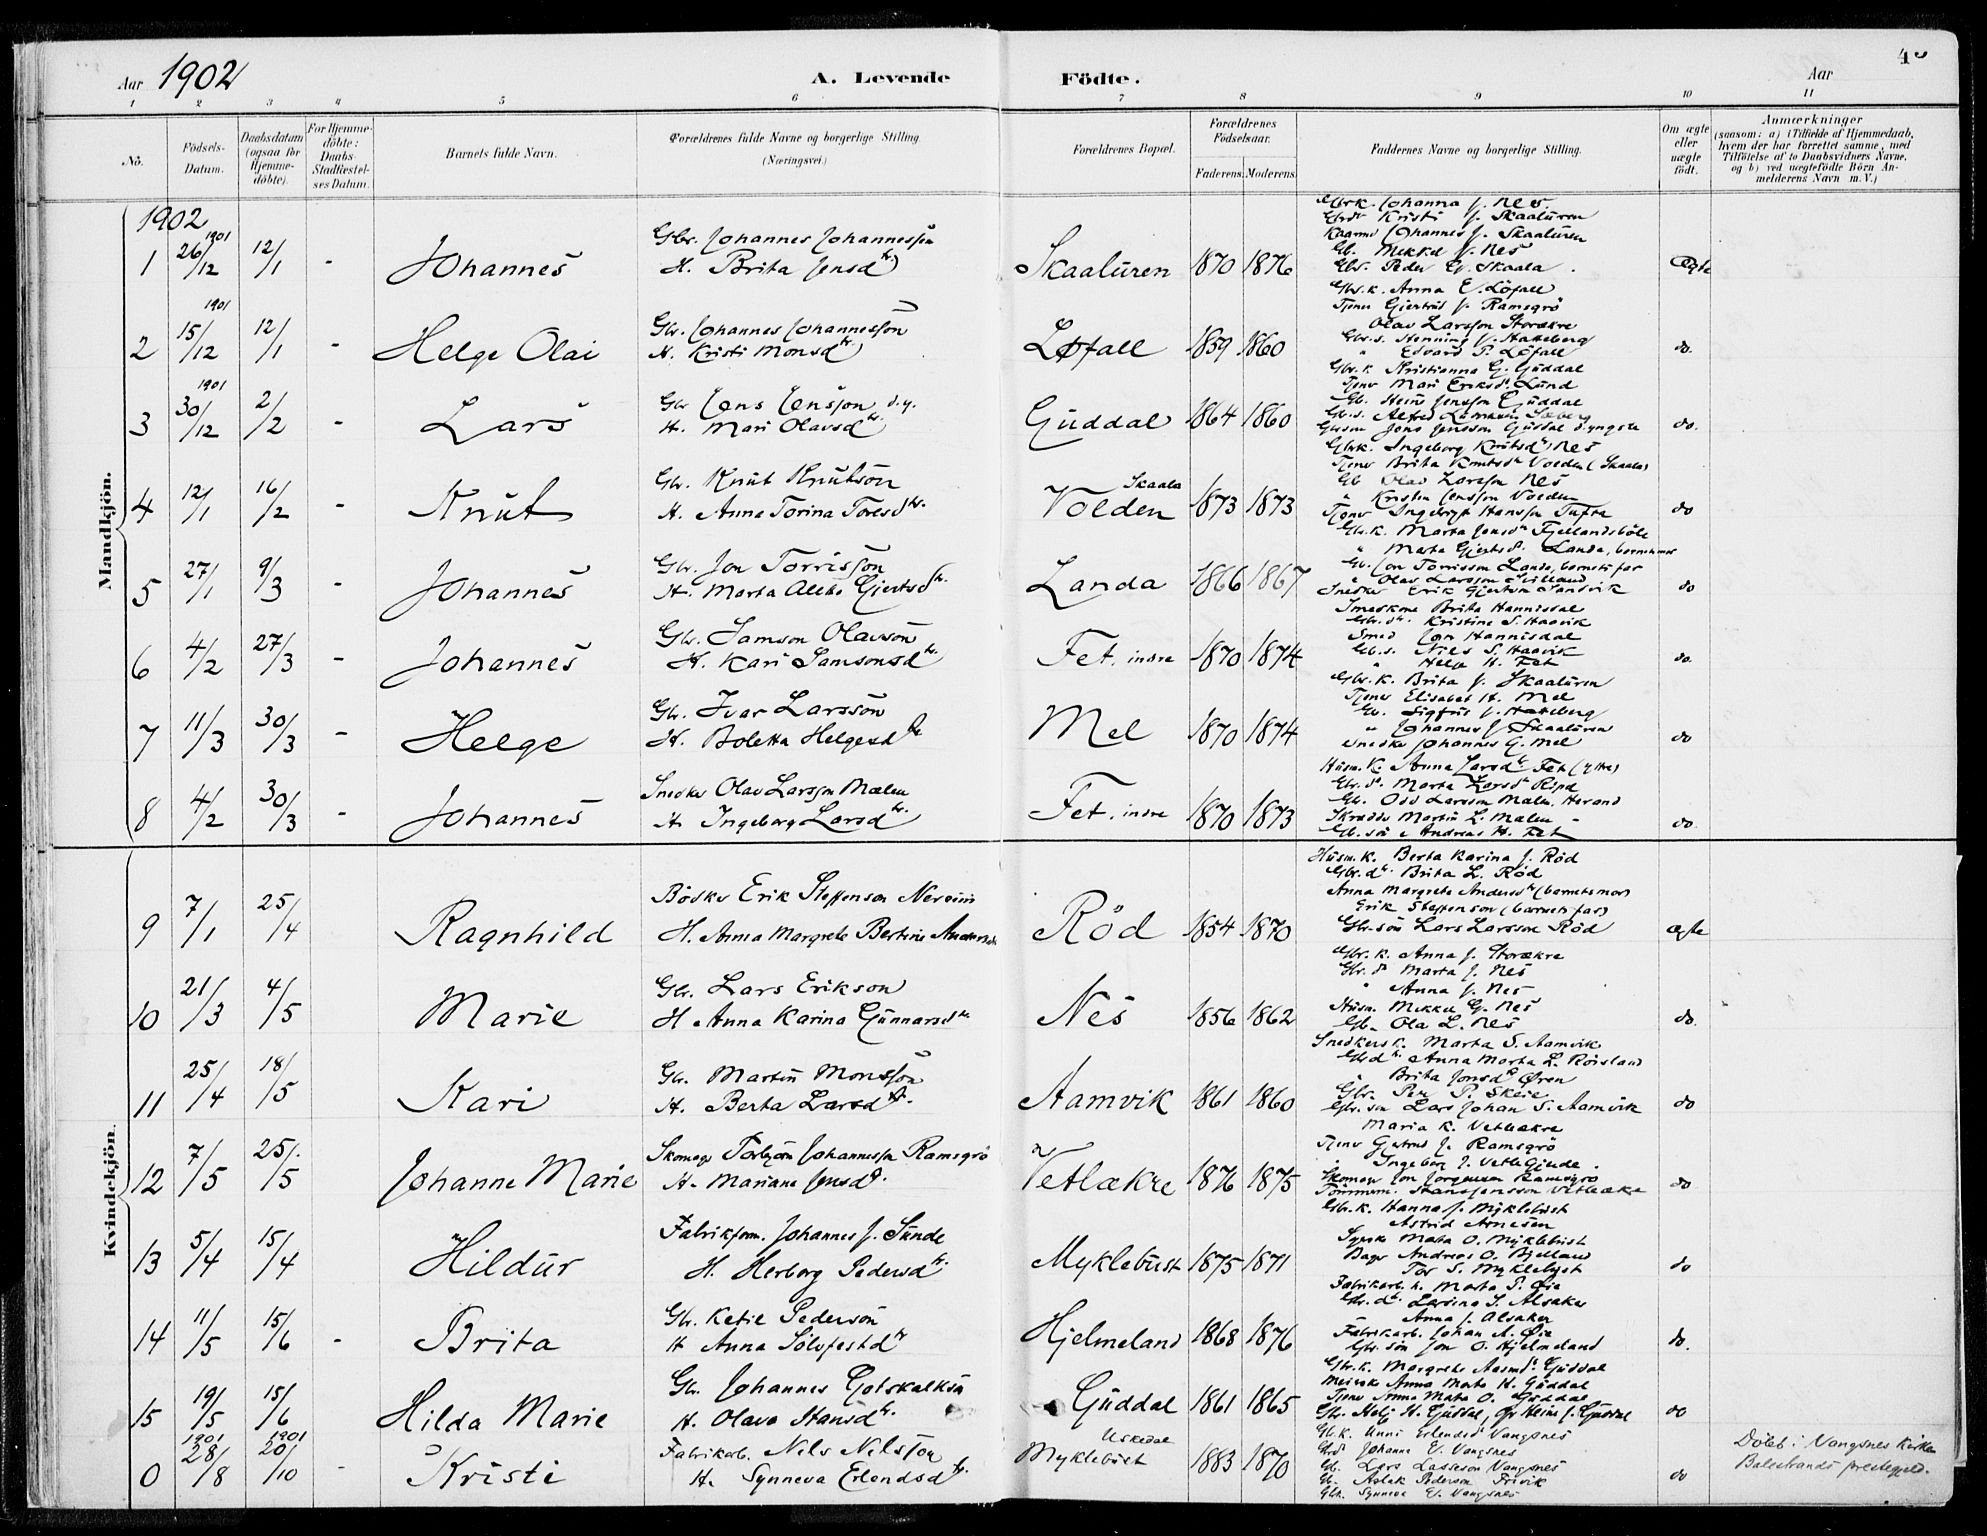 Aar 1902 A. Levende Födte. Aar 4
1 2 3 4 5 6 7 8 9 10 11
No. Födsels-Datum. Daabsdatum (ogsaa for Hjemme-döbte). For Hjemme-döbte: Daabs-Stadfæstel-ses Datum. Barnets fulde Navn. Forældrenes fulde Navne og borgerlige Stilling. (Næringsvei.) Forældrenes Bopæl. Forældrenes Födselsaar. Faderens. Moderens. Faddernes Navne og borgerlige Stilling. Om ægte eller uægte födt. Anmærkninger (saasom: a) i Tilfælde af Hjemmedaab, hvem der har forrettet samme, med Tilföielse af to Daabsvidners Navne, og b) ved uægtefödte Börn An-melderens Navn m. V.)
Mandkjön.
1902
1 1901 26/12 12/1 - Johannes
Gbr. Johannes Johannessen
H. Brita Jensdtr
Skaaluren 1870 1876
Gbrk. Johanna J. Nes
Gbrdr Kristi J. Skaaluren
Kaarmd Johannes J. Skaaluren
Gb. Mikkel J. Nes
Gbr. Peder G. Skaala
Ægte
2 1901 15/12 12/1 - Helge Olai
Gbr. Johannes Johannesson
H. Kristi Monsdtr
Løfall 1859 1860
Gbr.k. Anna E. Löfall
Tjener Gjertrud J. Ramsgrö
Olav Larsson Storækre
Gbr.s. Henning J. Hatteberg
" Edvard P. Löfall
do.
3 1901 30/12 2/2 - Lars
Gbr Jens Jensson d.y.
H. Mari Olavsdtr
Guddal 1864 1860
Gbr.k Kristianna G. Guddal
Tjener Mari Eriksdr Lund
Gb. Heine Jensson Guddal
Gbrson Jens Jensson Guddal d.yngste
do.
4 12/1 16/2 - Knut
Gbr. Knut Knutson
H. Anna Torina Toresdtr.
Skaala
Volden 1873 1873
Gbrk. Ingeborg Knutsdr Nes
Tjener Brita Knutsdr Volden (Skaala)
Gb Olav Larsson Nes
" Kristen Jensson Volden
Tjener Ingebrigt Hansson Tufte
do
5 27/1 9/3 - Johannes
Gbr. Jon Torrisson
H. Marta Gjertsdtr.
Landa 1866 1867
Gbr.k. Marta Jonsdr Fjellandsböle
" Marta Gjertsdr. Landa, barnets mor
Gb. Jon Torrisson Landa, barnets far
Snedker Erik Gjertson Sandvik
do
6 4/2 27/3 - Johannes
Gbr. Samson Olavson
H. Kari Samsonsdtr
Fet, indre 1870 1874
Smedkone Brita Hannisdal
Gbr.dtr. Kristine S. Haavik
Smed Jon Hannisdal
Gb.s. Nils S. Haavik
" Helge H. Fet
do.
7 11/3 30/3 - Helge
Gbr. Ivar Larsson
H. Boletta Helgesdtr
Mel 1870 1874
Gbr.k. Brita J. Skaaluren
Tjener Elisabet H. Mel
Gb. Sigfrid J. Hatteberg
" Johannes J. Skaaluren
Snedker Johannes G. Mel
do
8 4/2 30/3 - Johannes
Snedker Olav Larsson Malen
H. Ingeborg Larsdtr.
Fet, indre 1870 1873
Husm.K. Anna Larsdtr. Fet (ytre)
Gbr.dr. Marta Larsdr Ripel
Gb. Odd Larsson Malen, Herand
Skrædder Martin L. Malen
Gb. sön Andreas H. Fet
do.
Kvindekjön.
9 7/1 25/4 Ragnhild
Bödker Erik Steffenson Nerven
H. Anna Margrete Bertine Andersdtr
Röd 1854 1870
Husm.k. Berta Karina J. Röd
Gbr.dtr. Brita L. Röd
Anna Margrete Andersdtr (barnets mor)
Erik Steffenson (barnets far)
Gbr.sön Lars Larsson Röd
ægte
10 21/3 4/5 Marie
Gbr. Lars Erikson
H Anna Karina Gunnarsdtr
Nes 1856 1862
Gbr.k. Anna J. Storækre
Gbr.dr Marta J. Nes
" Anna J. Nes
Husm. Mikkel G. Nes
Gb. Ola L. Nes
do.
11 25/4 18/5 Kari
Gbr. Martin Monsson
H. Berta Larsdtr.
Aamvik 1861 1860
Snedkers k. Marta S. Aamvik
Gbdtr. Anna Marta L. Rörsland
" Brita Jonsdr Øren
Gbr. Per P. Skeie
Gbr.sön Lars Johan S. Aamvik
do
12 7/5 25/5 Johanne Marie
Skomager Torbjörn Johannesson Ramsgrö
H. Mariane Jensdr.
Vetlækre 1876 1875
Maria K. Vetlækre
Tjener Gjertrud J. Ramsgrö
Ingeborg J. Vetlegjerde
Skomager Jon Jorgensen Ramsgrö
Tömmerm. Hans Jensson Vetleækre
do
13 5/4 15/4 Hildur
Fabrikform. Johannes J. Sunde
H. Herborg Pedersdtr.
Myklebust 1875 1871
Gbr.k. Hanna J. Myklebust
Astrid Arnesen
Syerske Marta O. Myklebust
Bager Andreas O. Bjelland
Tor S. Myklebust
do
14 11/5 15/6 - Brita
Gbr. Ketil Pederson
H Anna Sölvfestdtr
Hjelmeland 1868 1876
Fabrikarb. k. Marta P. Øie
Gbr.dtr. Larsina S. Alsaker
Anna J. Alsaker
Fabrikarb. Johan A. Øie
Gbr. sön Jon O. Hjelmeland
do.
15 19/5 15/6 Hilda Marie
Gbr. Johannes Gotskalksön
H. Olava Hansdtr.
Guddal 1861 1865
Gbr.k. Margrete Aasmdr Guddal
Meierske Anna Marta H. Guddal
Tjener Anna Marta O. Guddal
Gbr. Helj H. Guddal, Gbr Heine J. Guddal
do
0 1901 28/8 1901 20/10 - Kristi
Fabrikarb. Nils Nilsson
H. Synneva Erlendsdtr.
Uskedal
Myklebust 1883 1870
Gb.k. Unni Erlendsdr Vangsnes
Gbrdr Johanne E. Vangsnes
Gb. Lars Lasseson Vangsnes
Gb. Aslak Pederson Frivik
Gbk. Synneve E. Vangsnes
do
Döbt i Vangsnes Kirke
Balestrands prestegjeld.